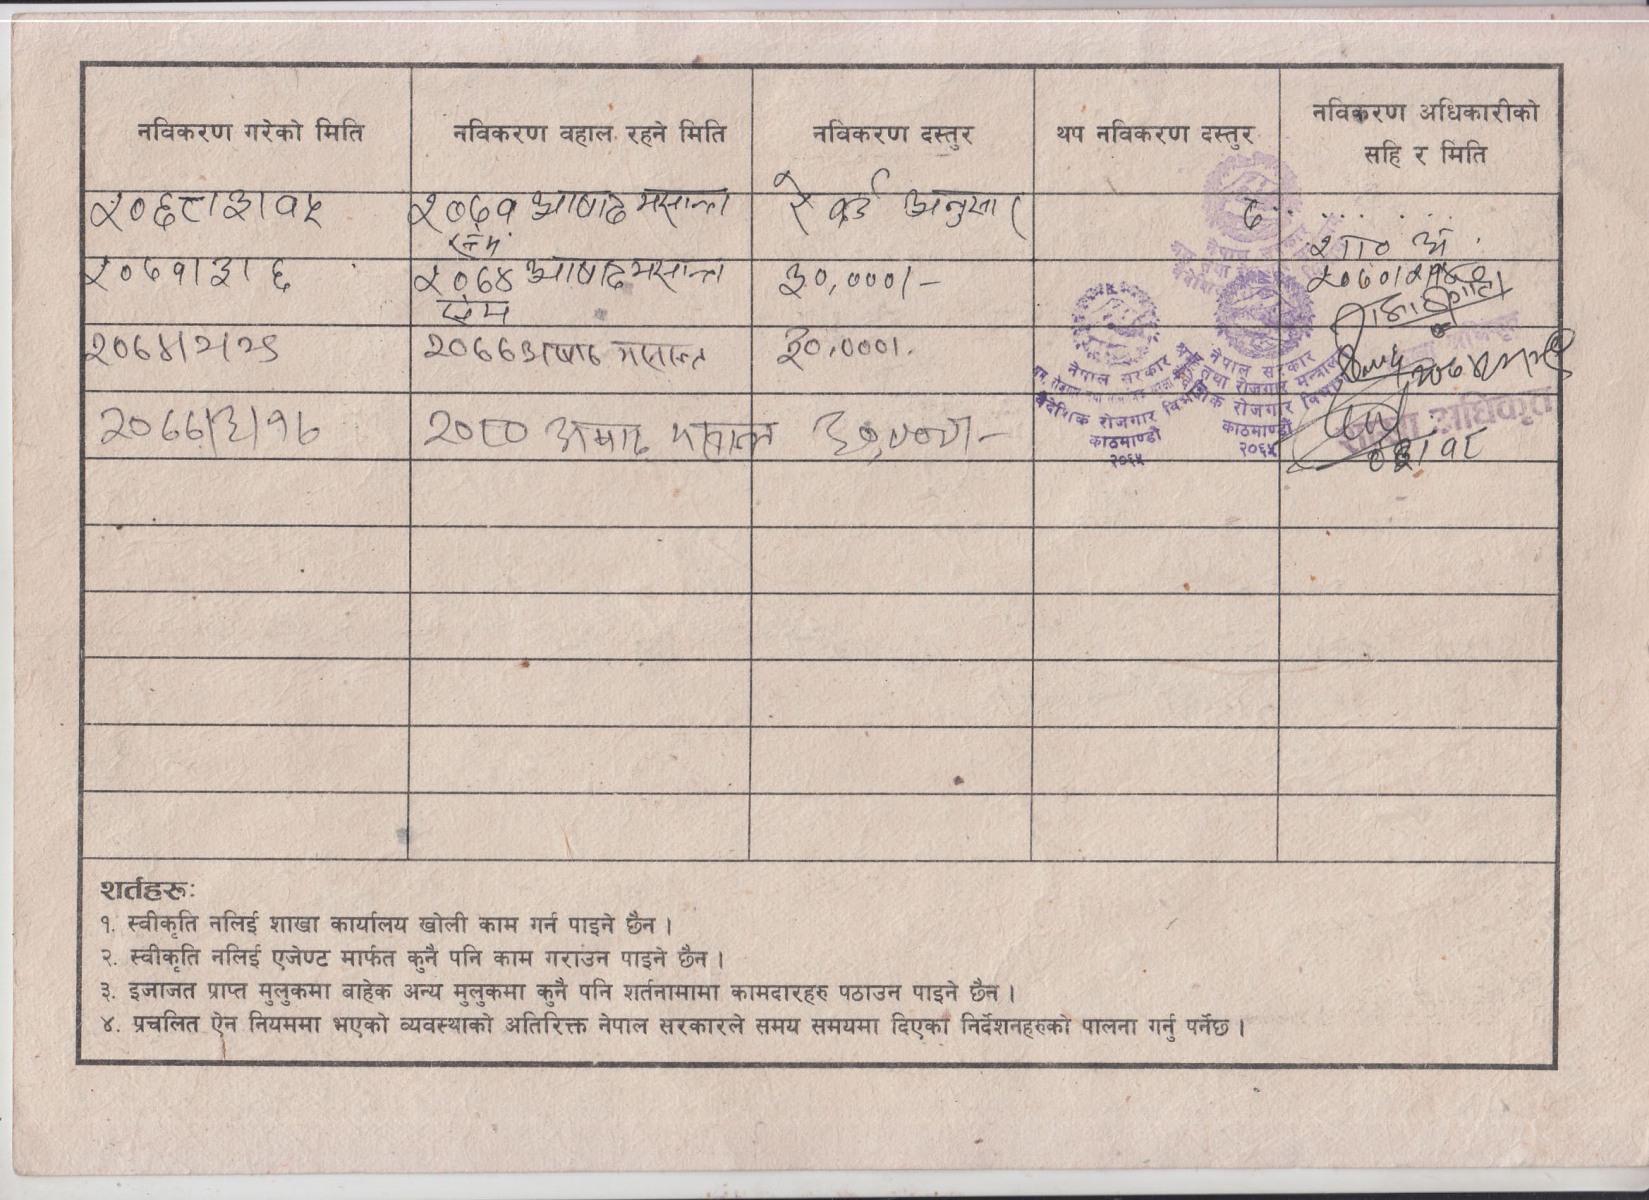 नविकरण गरेको मिति
नविकरण वहाल रहने मिति
नविकरण दस्तुर
थप नविकरण दस्तुर
नविकरण अधिकारीको
सहि र मिति
२०६८।३।१५
२०७१ आषाढ मसान्त
सम्म
रेकर्ड अनुसार
२०७१।३।६
२०७४ आषाढ मसान्त
सम्म
३०,०००।-
२०७४।२।२५
२०७७ अषाढ मसान्त
३०,०००।
२०७७।३।१७
२०८० अषाढ मसान्त
नेपाल सरकार
वैदेशिक रोजगार विभाग
काठमाण्डौ
२०६५
नेपाल सरकार
श्रम तथा रोजगार मन्त्रालय
वैदेशिक रोजगार विभाग
काठमाण्डौ
२०६५
शाखा अधिकृत
शर्तहरू:
१. स्वीकृति नलिई शाखा कार्यालय खोली काम गर्न पाइने छैन ।
२. स्वीकृति नलिई एजेण्ट मार्फत कुनै पनि काम गराउन पाइने छैन ।
३. इजाजत प्राप्त मुलुकमा बाहेक अन्य मुलुकमा कुनै पनि शर्तनामामा कामदारहरु पठाउन पाइने छैन ।
४. प्रचलित ऐन नियममा भएको व्यवस्थाको अतिरिक्त नेपाल सरकारले समय समयमा दिएका निर्देशनहरुको पालना गर्नु पर्नेछ ।